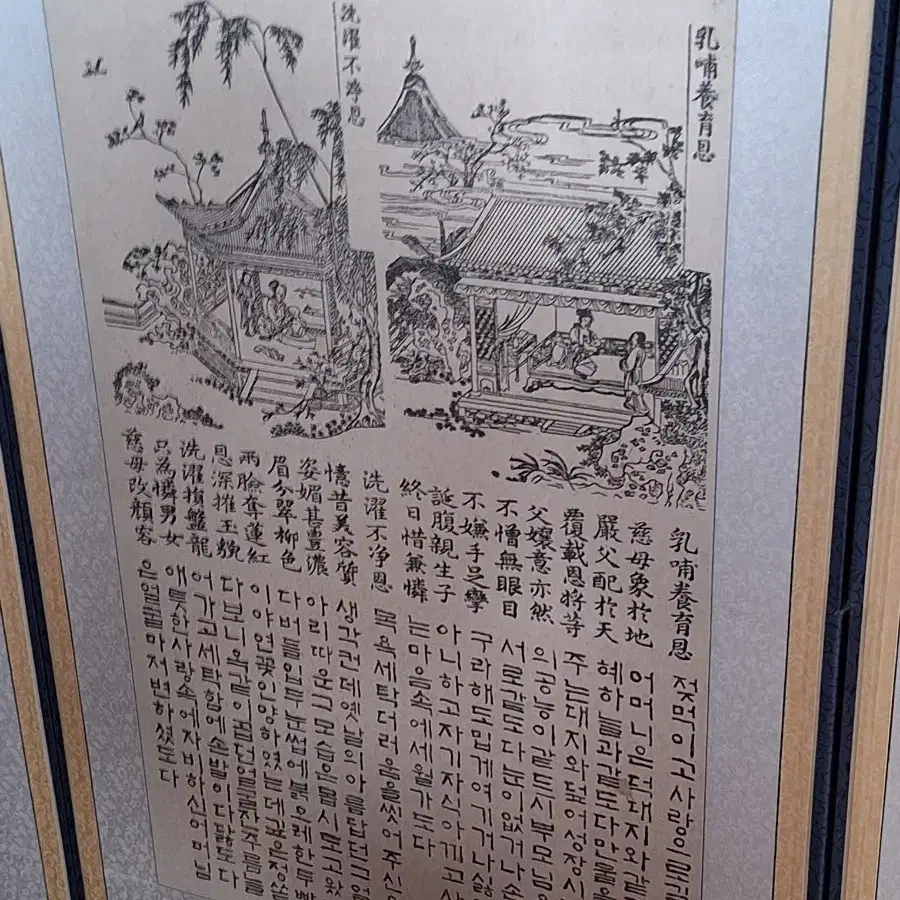 乳哺養育恩
洗濯不淨恩
乳哺養育恩
慈母象於地
嚴父配於天
覆載恩將等
父孃意亦然
不憎無眼目
不嫌手足攣
誕腹親生子
終日惜兼憐
洗濯不净恩
憶昔美容質
姿媚甚豊濃
眉分翠柳色
兩臉奪蓮紅
恩深摧玉貌
洗濯損盤龍
只為憐男女
慈母改顔容
젖먹이고사랑으로
어머니은덕대지와같
혜하늘과같도다만물을
주는대지와덮어성장시
의공능이같드시부모님
서로같도다눈이없거나손
구라해도밉게여기거나싫
아니하고자기자식아끼고사
는마음속에세월가도다
목욕세탁더러움을씻어주신
생각컨데옛날의아름답던그얼
아리따운그모습은몹시도고왔
다버들잎두눈썹에붉으레한두뺨
이야연꽃인양하였는데깊은정쏟
다보니옥같이곱던얼굴잔주름을
어가고세탁함에손발이다닳도다
애틋한사랑속에자비하신어머님
은얼굴마저변하셨도다